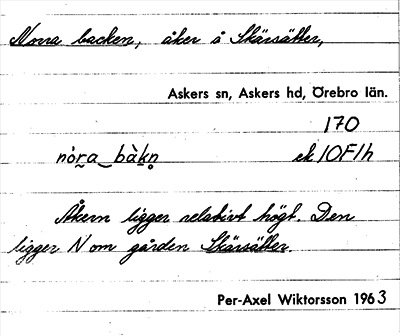 Norra backen, åker å Skärsätter,
Askers sn, Askers hd, Örebro län.
170
nòra_bàkn̥ ek 10F1h
Åkern ligger relativt högt. Den
ligger N om gården Skärsätter.
Per-Axel Wiktorsson 1963